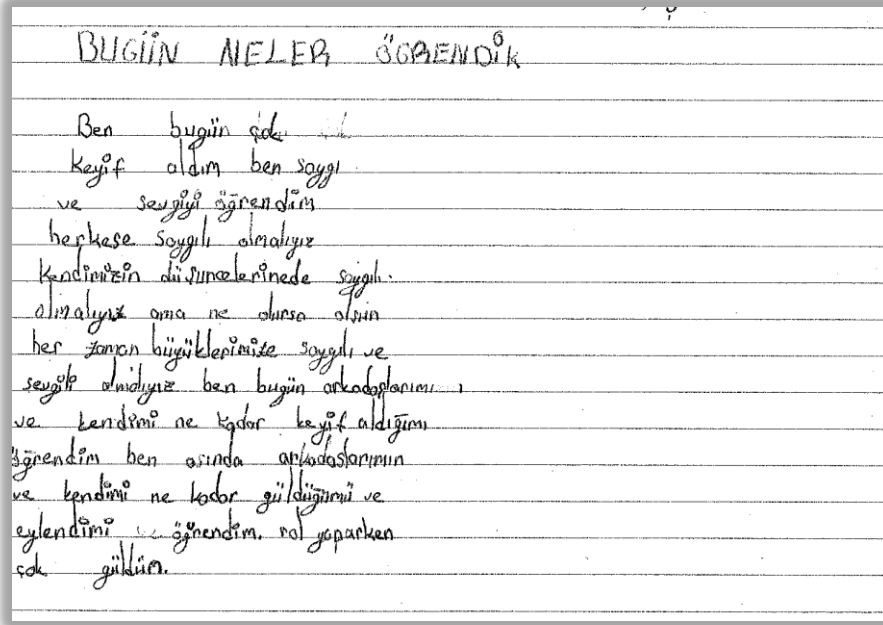 BUGÜN NELER ÖĞRENDİK
Ben bugün çok
keyif aldım ben saygı
ve sevgiyi öğrendim
herkese saygılı olmalıyız
kendimizin düşüncelerinede saygılı
olmalıyız ama ne olursa olsun
her zaman büyüklerimize saygılı ve
sevgili olmalıyız ben bugün arkadaşlarımı
ve kendimi ne kadar keyif aldığımı
öğrendim ben asında arkadaşlarımın
ve kendimi ne kadar güldüğümü ve
eylendimi öğrendim. rol yaparken
çok güldüm.